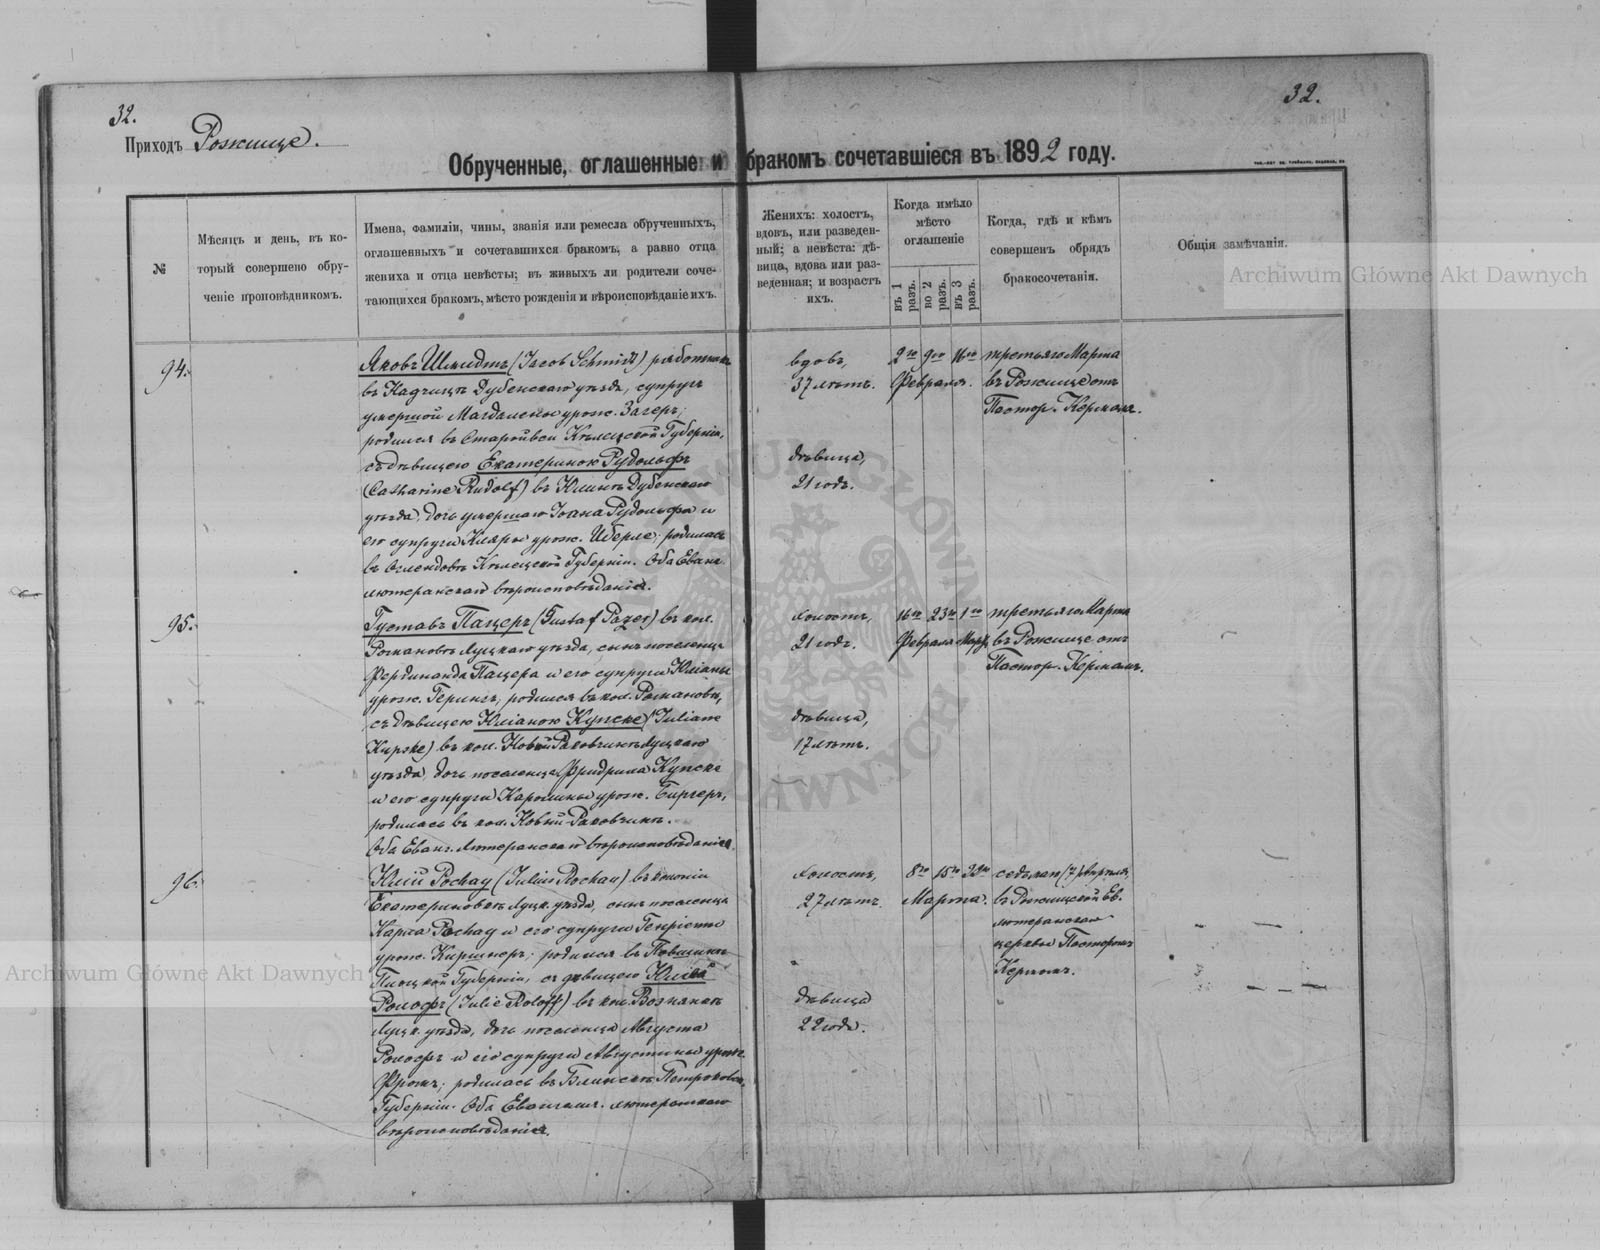 32.
32.
Приходъ Рожище.
Обрученные, оглашенные и бракомъ сочетавшіеся въ 1892 году.
№
Мѣсяцъ и день, въ ко-
торый совершено обру-
ченіе проповѣдникомъ.
Имена, фамиліи, чины, званія или ремесла обрученныхъ,
оглашенныхъ и сочетавшихся бракомъ, а равно отца
жениха и отца невѣсты; въ живыхъ ли родители соче-
тающихся бракомъ, мѣсто рожденія и вѣроисповѣданіе ихъ.
Женихъ: холостъ,
вдовъ, или разведен-
ный; а невѣста: дѣ-
вица, вдова или раз-
веденная; и возрастъ
ихъ.
Когда имѣло
мѣсто
оглашеніе
въ 1 разъ.
во 2 разъ.
въ 3 разъ.
Когда, гдѣ и кѣмъ
совершенъ обрядъ
бракосочетанія.
Общія замѣчанія.
94.
Яковъ Шмидтъ (Jacob Schmidt) работникъ
въ Дубенскаго уѣзда, супругъ
умершой Магдалены урож. Загеръ;
родился въ Старойвси Кѣлецской Губерніи,
съ дѣвицею Екатериною Рудольфъ
(Catharine Rudolf) въ Дубенскаго
уѣзда, дочь умершаго Іоана Рудольфа и
его супруги Клары урож. Иберле; родилась
въ Кѣлецской Губерніи. Оба Еванг.
лютеранскаго вѣроисповѣданія.
вдовъ,
37 лѣтъ.
дѣвица,
21 годъ.
2го 9го 16го
Февраля.
третьяго Марта
въ Рожище отъ
Пастор. Кермана.
95.
Густавъ Пацеръ (Gustaf Pazer) въ кол.
Романовъ Луцкаго уѣзда, сынъ поселенца
Фердинанда Пацера и его супруги Юліаны
урож. Герингъ; родился въ кол. Романовъ,
съ дѣвицею Юліаною Купске (Juliane
Kupske) въ кол. Новый Раковчинъ Луцкаго
уѣзда, дочь поселенца Фридриха Купске
и его супруги Каролины урож. Биргеръ,
родилась въ кол. Новый Раковчинъ.
Оба Еванг. Лютеранскаго вѣроисповѣданія.
холостъ,
21 годъ.
дѣвица,
17 лѣтъ.
16го 23го 1го
Февраля Марта
третьяго Марта
въ Рожище отъ
Пастор. Керманъ.
96.
Юлій Рохау (Julius Rochau) въ колоніи
Екатериновкѣ Луцк. уѣзда, сынъ поселенца
Карла Рохау и его супруги Генріетты
урож. Киршнеръ; родился въ
Плоцкой Губерніи, съ дѣвицею Юліею
Ролофъ (Julie Roloff) въ кол. Вознянкѣ
Луцк. уѣзда, дочь поселенца Августа
Ролофъ и его супруги Августины урож.
Фромъ; родилась въ Петроковск.
Губерніи. Оба Евангелич. лютеранскаго
вѣроисповѣданія.
холостъ,
27 лѣтъ.
дѣвица
22 года.
8го 15го 22го
Марта.
седьмаго (7) Апрѣля,
въ Рожищской Ев.
лютеранской
церкви Пасторомъ
Керманъ.
Archiwum Główne Akt Dawnych
Archiwum Główne Akt Dawnych